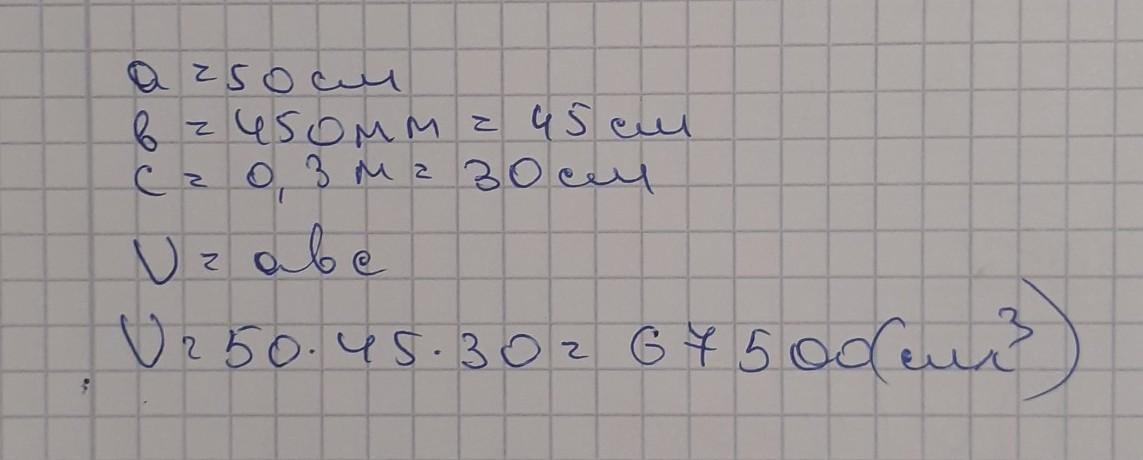 a = 50 см
в = 450 мм = 45 см
с = 0,3 м = 30 см
V = авс
V = 50 · 45 · 30 = 67500 (см³)